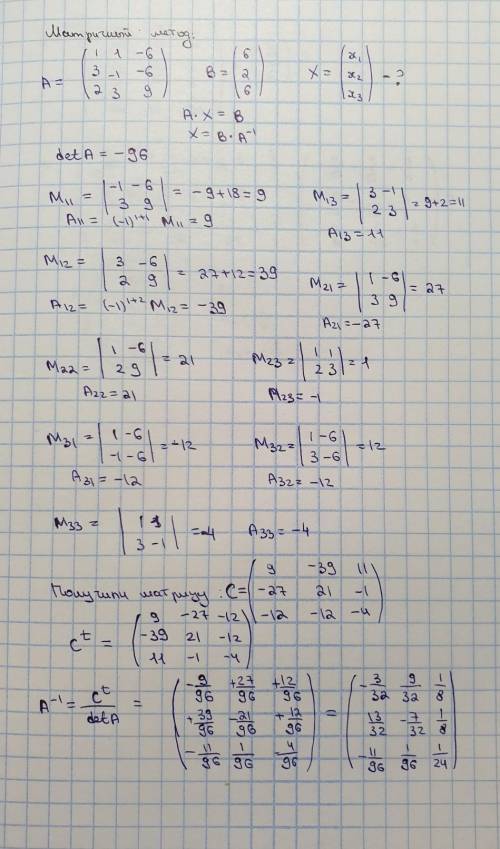 Матричный метод:
A = ( 1 1 -6 ; 3 -1 -6 ; 2 3 9 )  B = ( 6 ; 2 ; 6 )  X = ( x₁ ; x₂ ; x₃ ) - ?
A · X = B
X = B · A⁻¹
det A = -96
M₁₁ = | -1 -6 ; 3 9 | = -9+18 = 9  M₁₃ = | 3 -1 ; 2 3 | = 9+2 = 11
A₁₁ = (-1)¹⁺¹ M₁₁ = 9  A₁₃ = 11
M₁₂ = | 3 -6 ; 2 9 | = 27+12 = 39  M₂₁ = | 1 -6 ; 3 9 | = 27
A₁₂ = (-1)¹⁺² M₁₂ = -39  A₂₁ = -27
M₂₂ = | 1 -6 ; 2 9 | = 21  M₂₃ = | 1 1 ; 2 3 | = 1
A₂₂ = 21  A₂₃ = -1
M₃₁ = | 1 -6 ; -1 -6 | = -12  M₃₂ = | 1 -6 ; 3 -6 | = 12
A₃₁ = -12  A₃₂ = -12
M₃₃ = | 1 1 ; 3 -1 | = -4  A₃₃ = -4
Получили матрицу: C = ( 9 -39 11 ; -27 21 -1 ; -12 -12 -4 )
Cᵗ = ( 9 -27 -12 ; -39 21 -12 ; 11 -1 -4 )
A⁻¹ = Cᵗ/detA = ( -9/96 +27/96 +12/96 ; +39/96 -21/96 +12/96 ; -11/96 1/96 4/96 ) = ( -3/32 9/32 1/8 ; 13/32 -7/32 1/8 ; -11/96 1/96 1/24 )